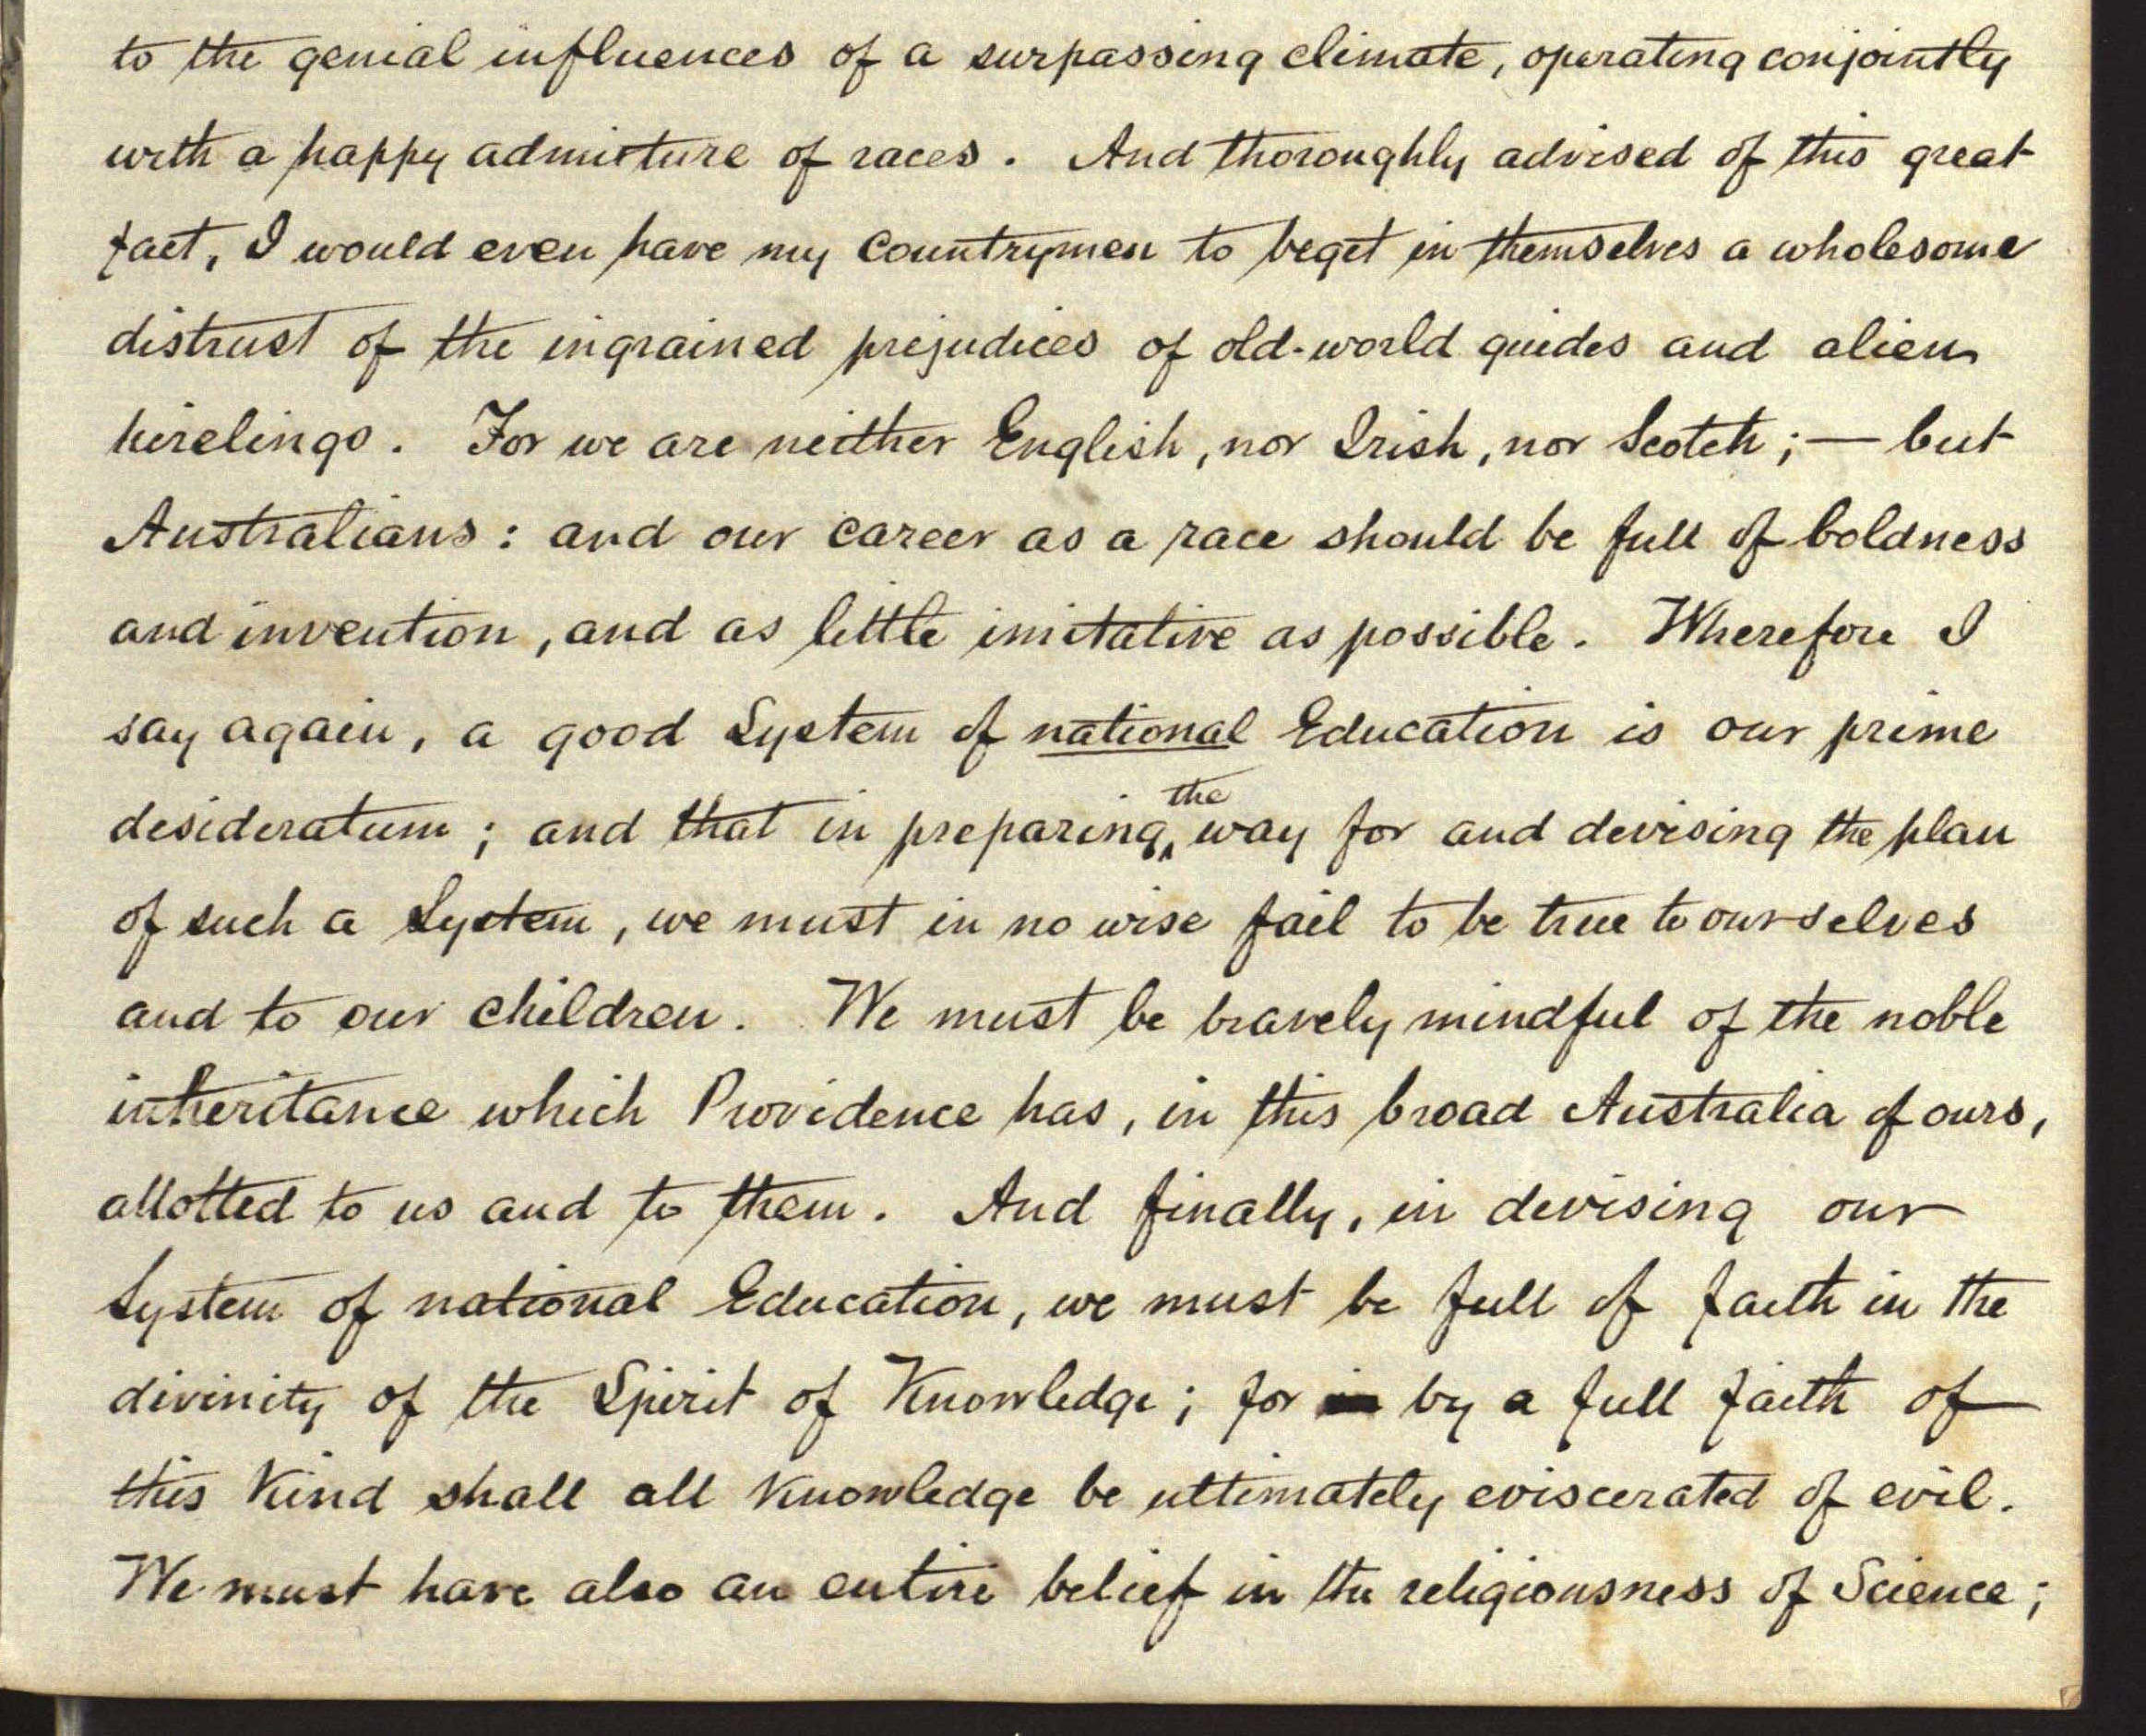 to the genial influences of a surpassing climate, operating conjointly
with a happy admixture of races. And thoroughly advised of this great
fact, I would even have my countrymen to beget in themselves a wholesome
distrust of the ingrained prejudices of old-world guides and alien
hirelings. For we are neither English, nor Irish, nor Scotch; — but
Australians: and our career as a race should be full of boldness
and invention, and as little imitative as possible. Wherefore I
say again, a good System of national Education is our prime
desideratum; and that in preparing the way for and devising the plan
of such a System, we must in no wise fail to be true to ourselves
and to our children. We must be bravely mindful of the noble
inheritance which Providence has, in this broad Australia of ours,
allotted to us and to them. And finally, in devising our
System of national Education, we must be full of faith in the
divinity of the Spirit of Knowledge; for by a full faith of
this kind shall all knowledge be ultimately eviscerated of evil.
We must have also an entire belief in the religiousness of Science;